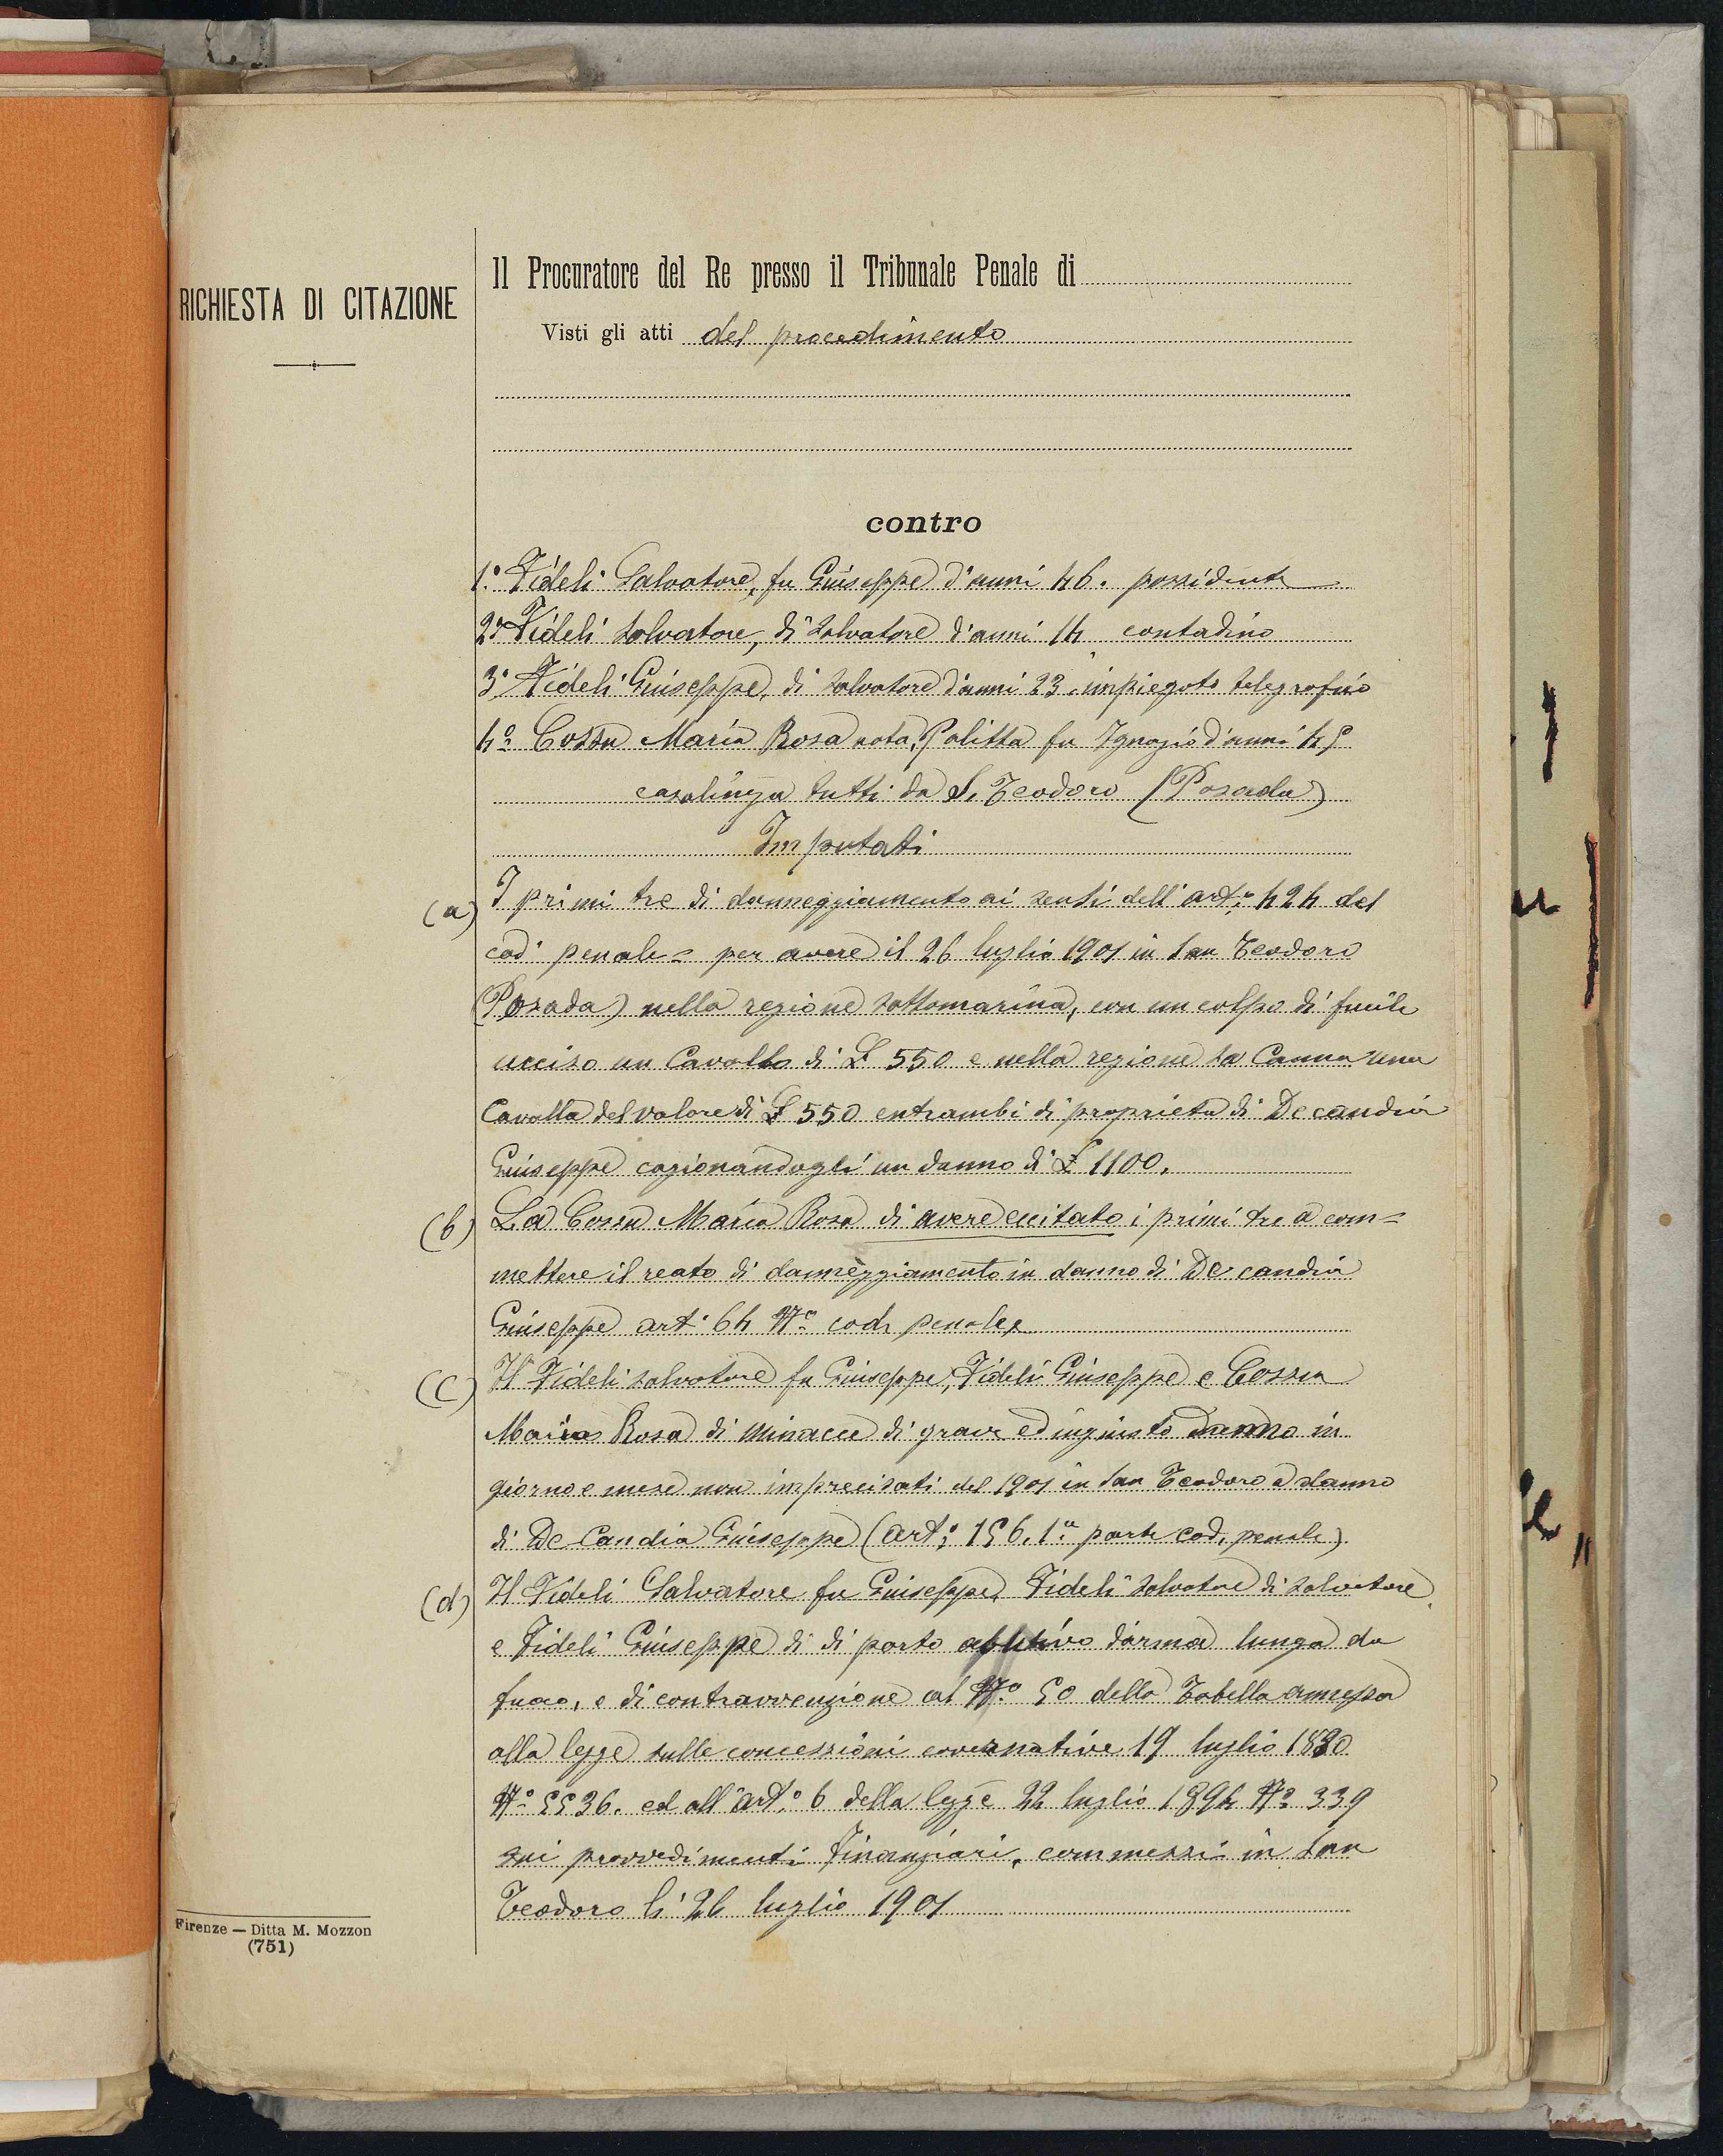 RICHIESTA DI CITAZIONE
Il Procuratore del Re presso il Tribunale Penale di
Visti gli atti del procedimento
contro
1.° Fideli Salvatore, fu Giuseppe d'anni 46. possidente
2° Fideli Salvatore, di Salvatore d'anni 14 contadino
3° Fideli Giuseppe, di Salvatore d'anni 23. impiegato telegrafico
4° Cossu Maria Rosa nota, Politta fu Ignazio d'anni 45
casalinga tutti da S. Teodoro (Posada)
Imputati
(a) I primi tre di danneggiamento ai sensi dell'art.° 424 del
cod. penale = per avere il 26 luglio 1901 in San Teodoro
(Posada) nella regione sottomarina, con un colpo di fucile
ucciso un Cavallo di £ 550 e nella regione sa Canna una
Cavalla del valore di £ 550 entrambi di proprieta di De candia
Giuseppe cagionandogli un danno di £ 1100.
(b) La Cossu Maria Rosa di avere eccitato i primi tre a com=
mettere il reato di danneggiamento in danno di De candia
Giuseppe art. 64 N° cod. penale
(c) Il Fideli Salvatore fu Giuseppe, Fideli Giuseppe e Cossu
Maria Rosa di minacce di grave ed ingiusto danno in
giorno e mese non imprecisati del 1901 in San Teodoro a danno
di De Candia Giuseppe (art.° 156. 1ª parte cod. penale)
(d) Il Fideli Salvatore fu Giuseppe, Fideli Salvatore di Salvatore
e Fideli Giuseppe di di porto abusivo d'arma lunga da
fuoco, e di contravvenzione al N.° 50 della Tabella annessa
alla legge sulle concessioni covernative 19 luglio 1880
N.° 5536. ed all'art.° 6 della legge 22 luglio 1894 N° 339
sui provvedimenti finanziari, commessi in San
Teodoro li 26 luglio 1901
Firenze — Ditta M. Mozzon
(751)